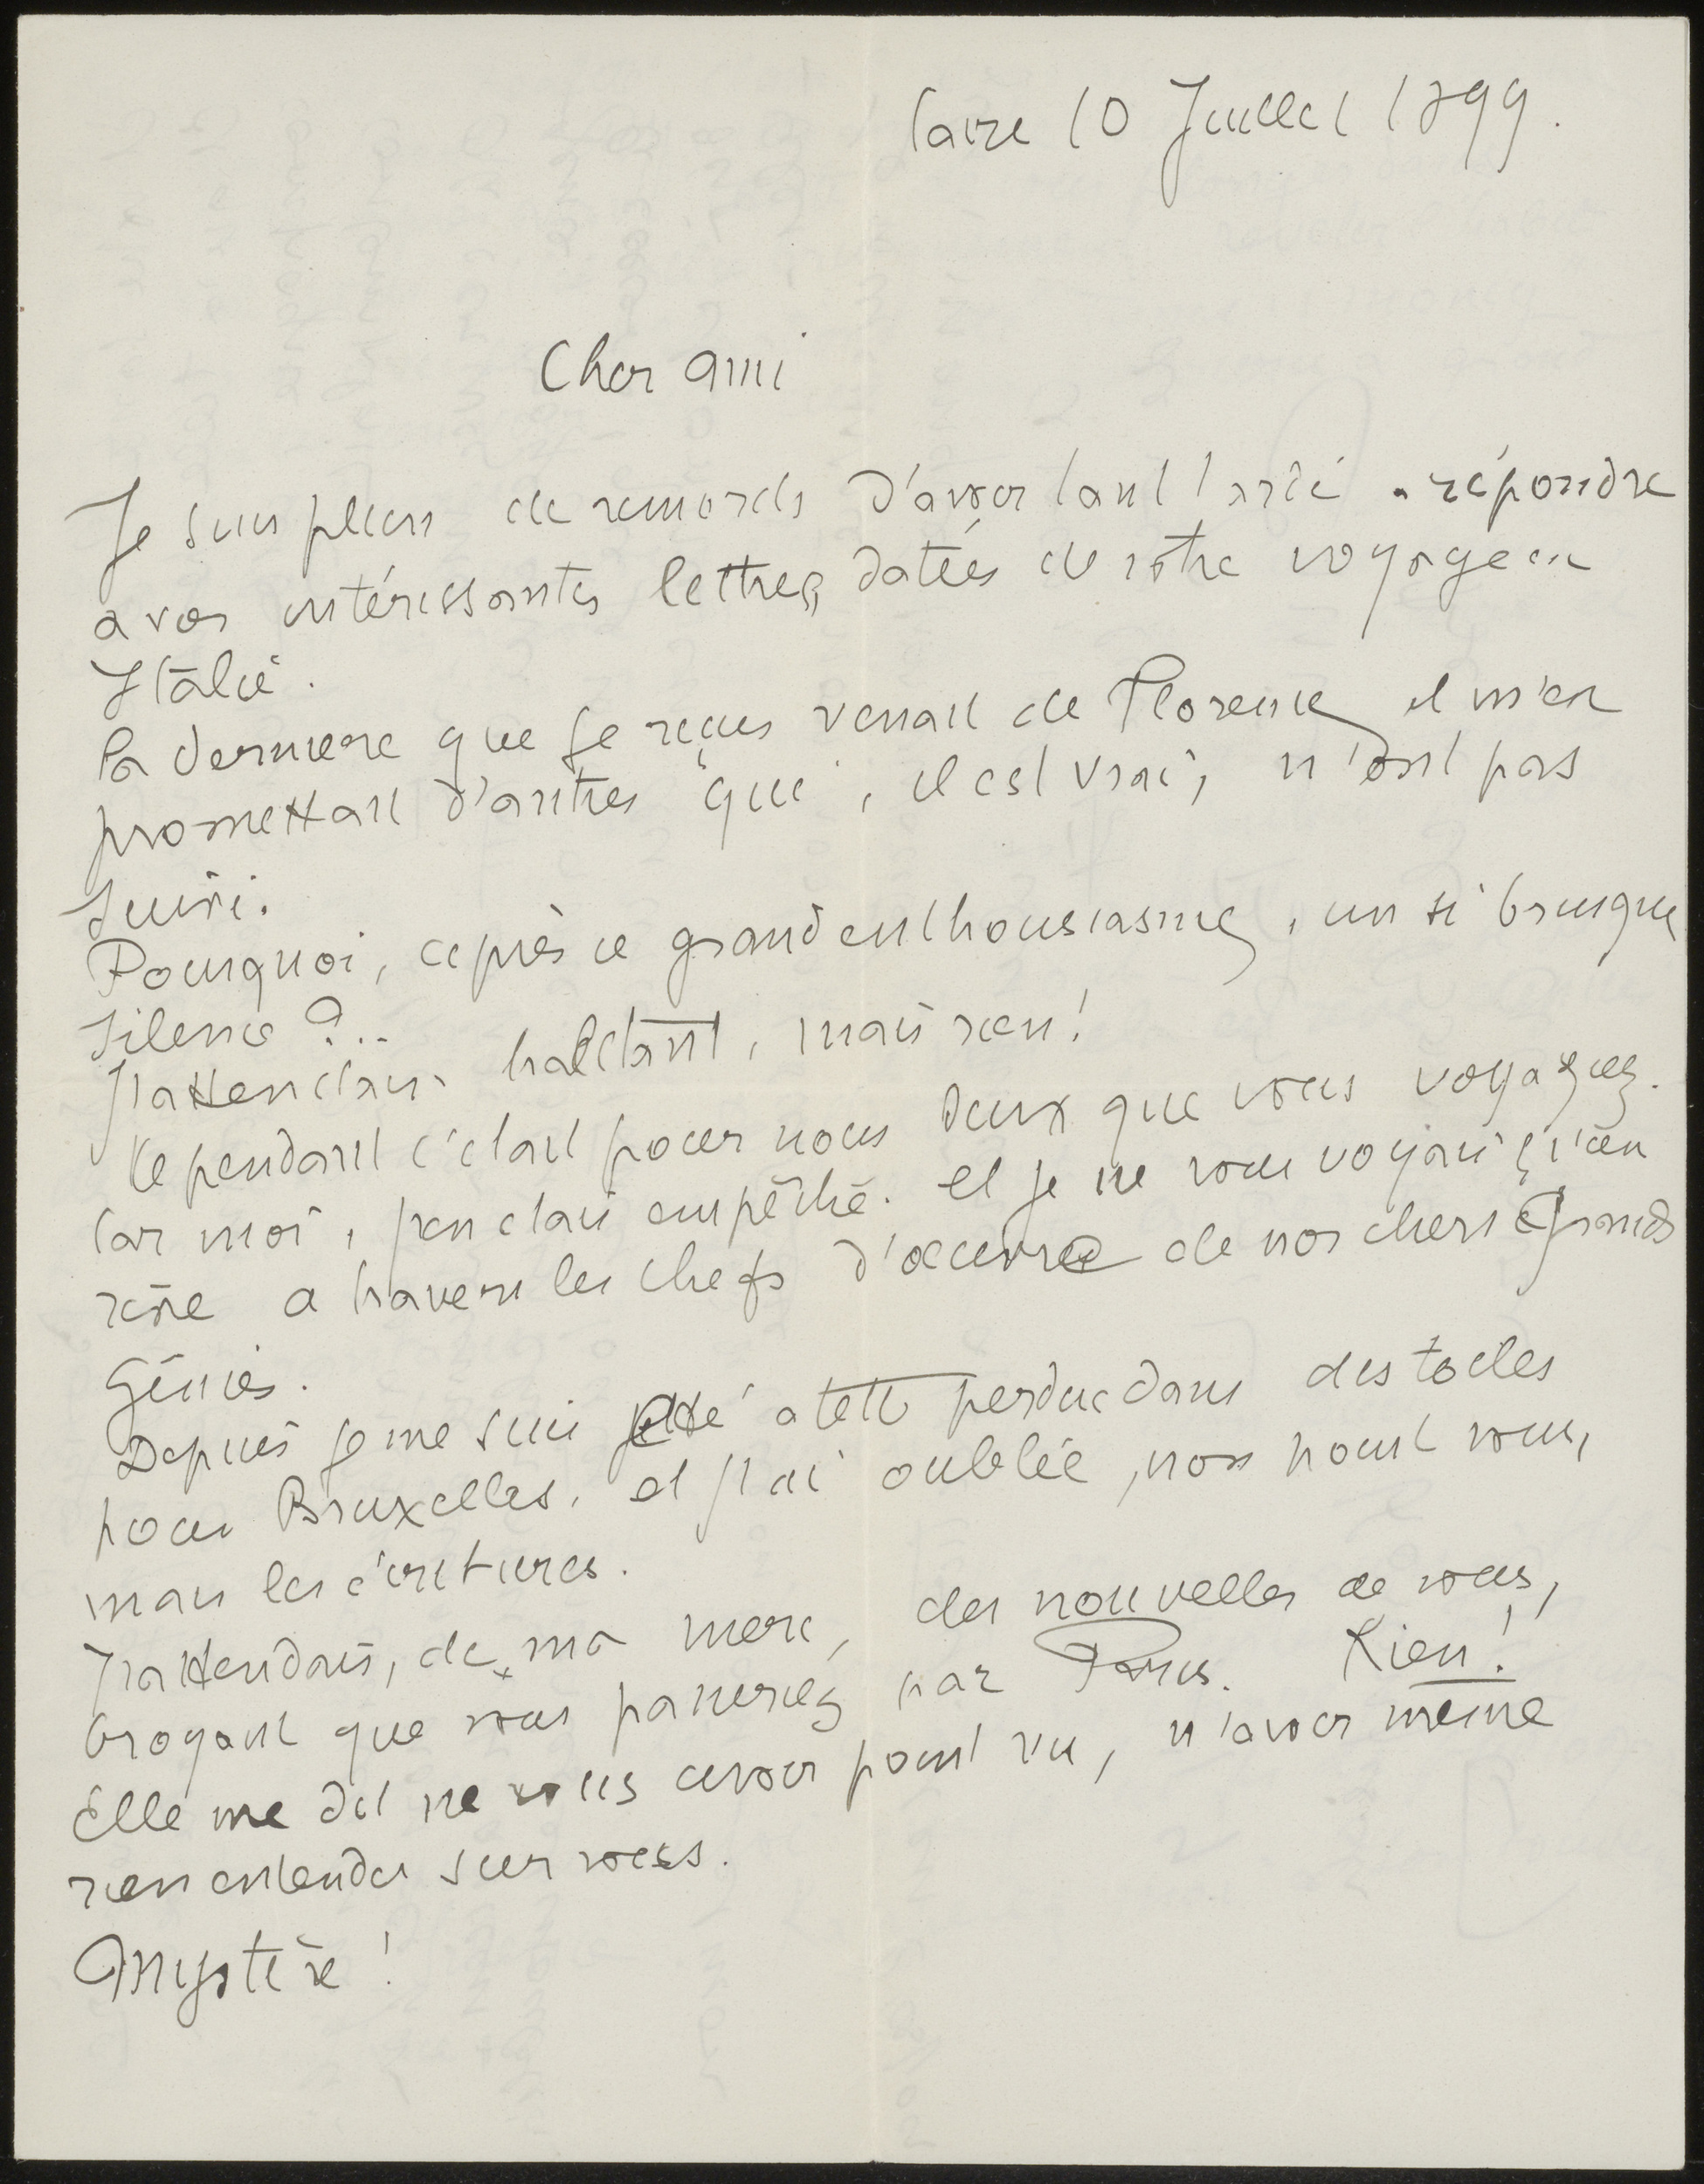 Caire 10 Juillet 1899.
Cher ami
Je suis plein de remords d'avoir tant tardé a répondre
a vos intéressantes lettres datées de votre voyage en
Italie.
La derniere que je reçus venait de Florence et m'en
promettait d'autres qui, il est vrai, n'ont pas
suivi.
Pourquoi, après ce grand enthousiasme, un si brusque
silence ?..
J'attendais haletant, mais rien!
Cependant c'etait pour nous deux que vous voyagiez.
Car moi, j'en etais empêché. et je ne vous voyais qu'en
rêve a travers les chefs d'oeuvre de nos chers Grands
Génies.
Depuis je me suis jetté a tete perdue dans des toiles
pour Bruxelles, et j'ai oublié, non point vous,
mais les écritures.
J'attendais, de ma mere, des nouvelles de vous,
croyant que vous passeriez par Paris. Rien!
Elle me dit ne vous avoir point vu, n'avoir même
rien entendu sur vous.
Mystère !